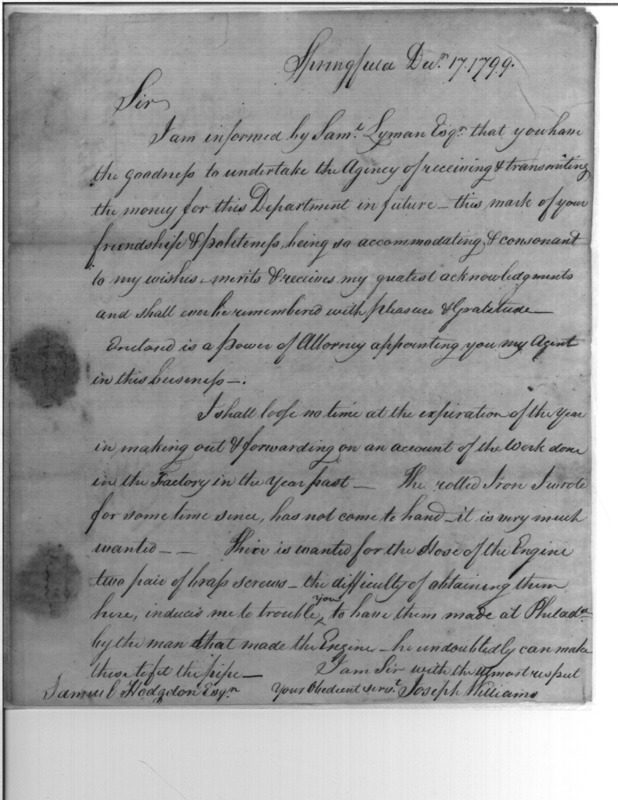 Springfield Decr. 17. 1799.
Sir
I am informed by Saml. Lyman Esqr. that you have
the goodness to undertake the Agency of receiving & transmiting
the money for this Department in future – this mark of your
friendship & politeness, being so accommodating & consonant
to my wishes – merits & receives my greatest acknowledgments
and shall ever be remembered with pleasure & Gratitude –
Enclosd is a power of Attorney appointing you my Agent
in this buseness –.
I shall lose no time at the expiration of the Year
in making out & forwarding on an account of the Work done
in the Factory in the Year past – The rolled Iron I wrote
for some time since, has not come to hand – it is very much
wanted – – There is wanted for the Hose of the Engine
two pair of brass screws – the difficulty of obtaining them
here, induces me to trouble you to have them made at Philada.
by the man that made the Engine – he undoubtedly can make
them to fit the pipe – I am Sir with the utmost respect
Samuel Hodgdon Esqr. Your Obedient servt. Joseph Williams